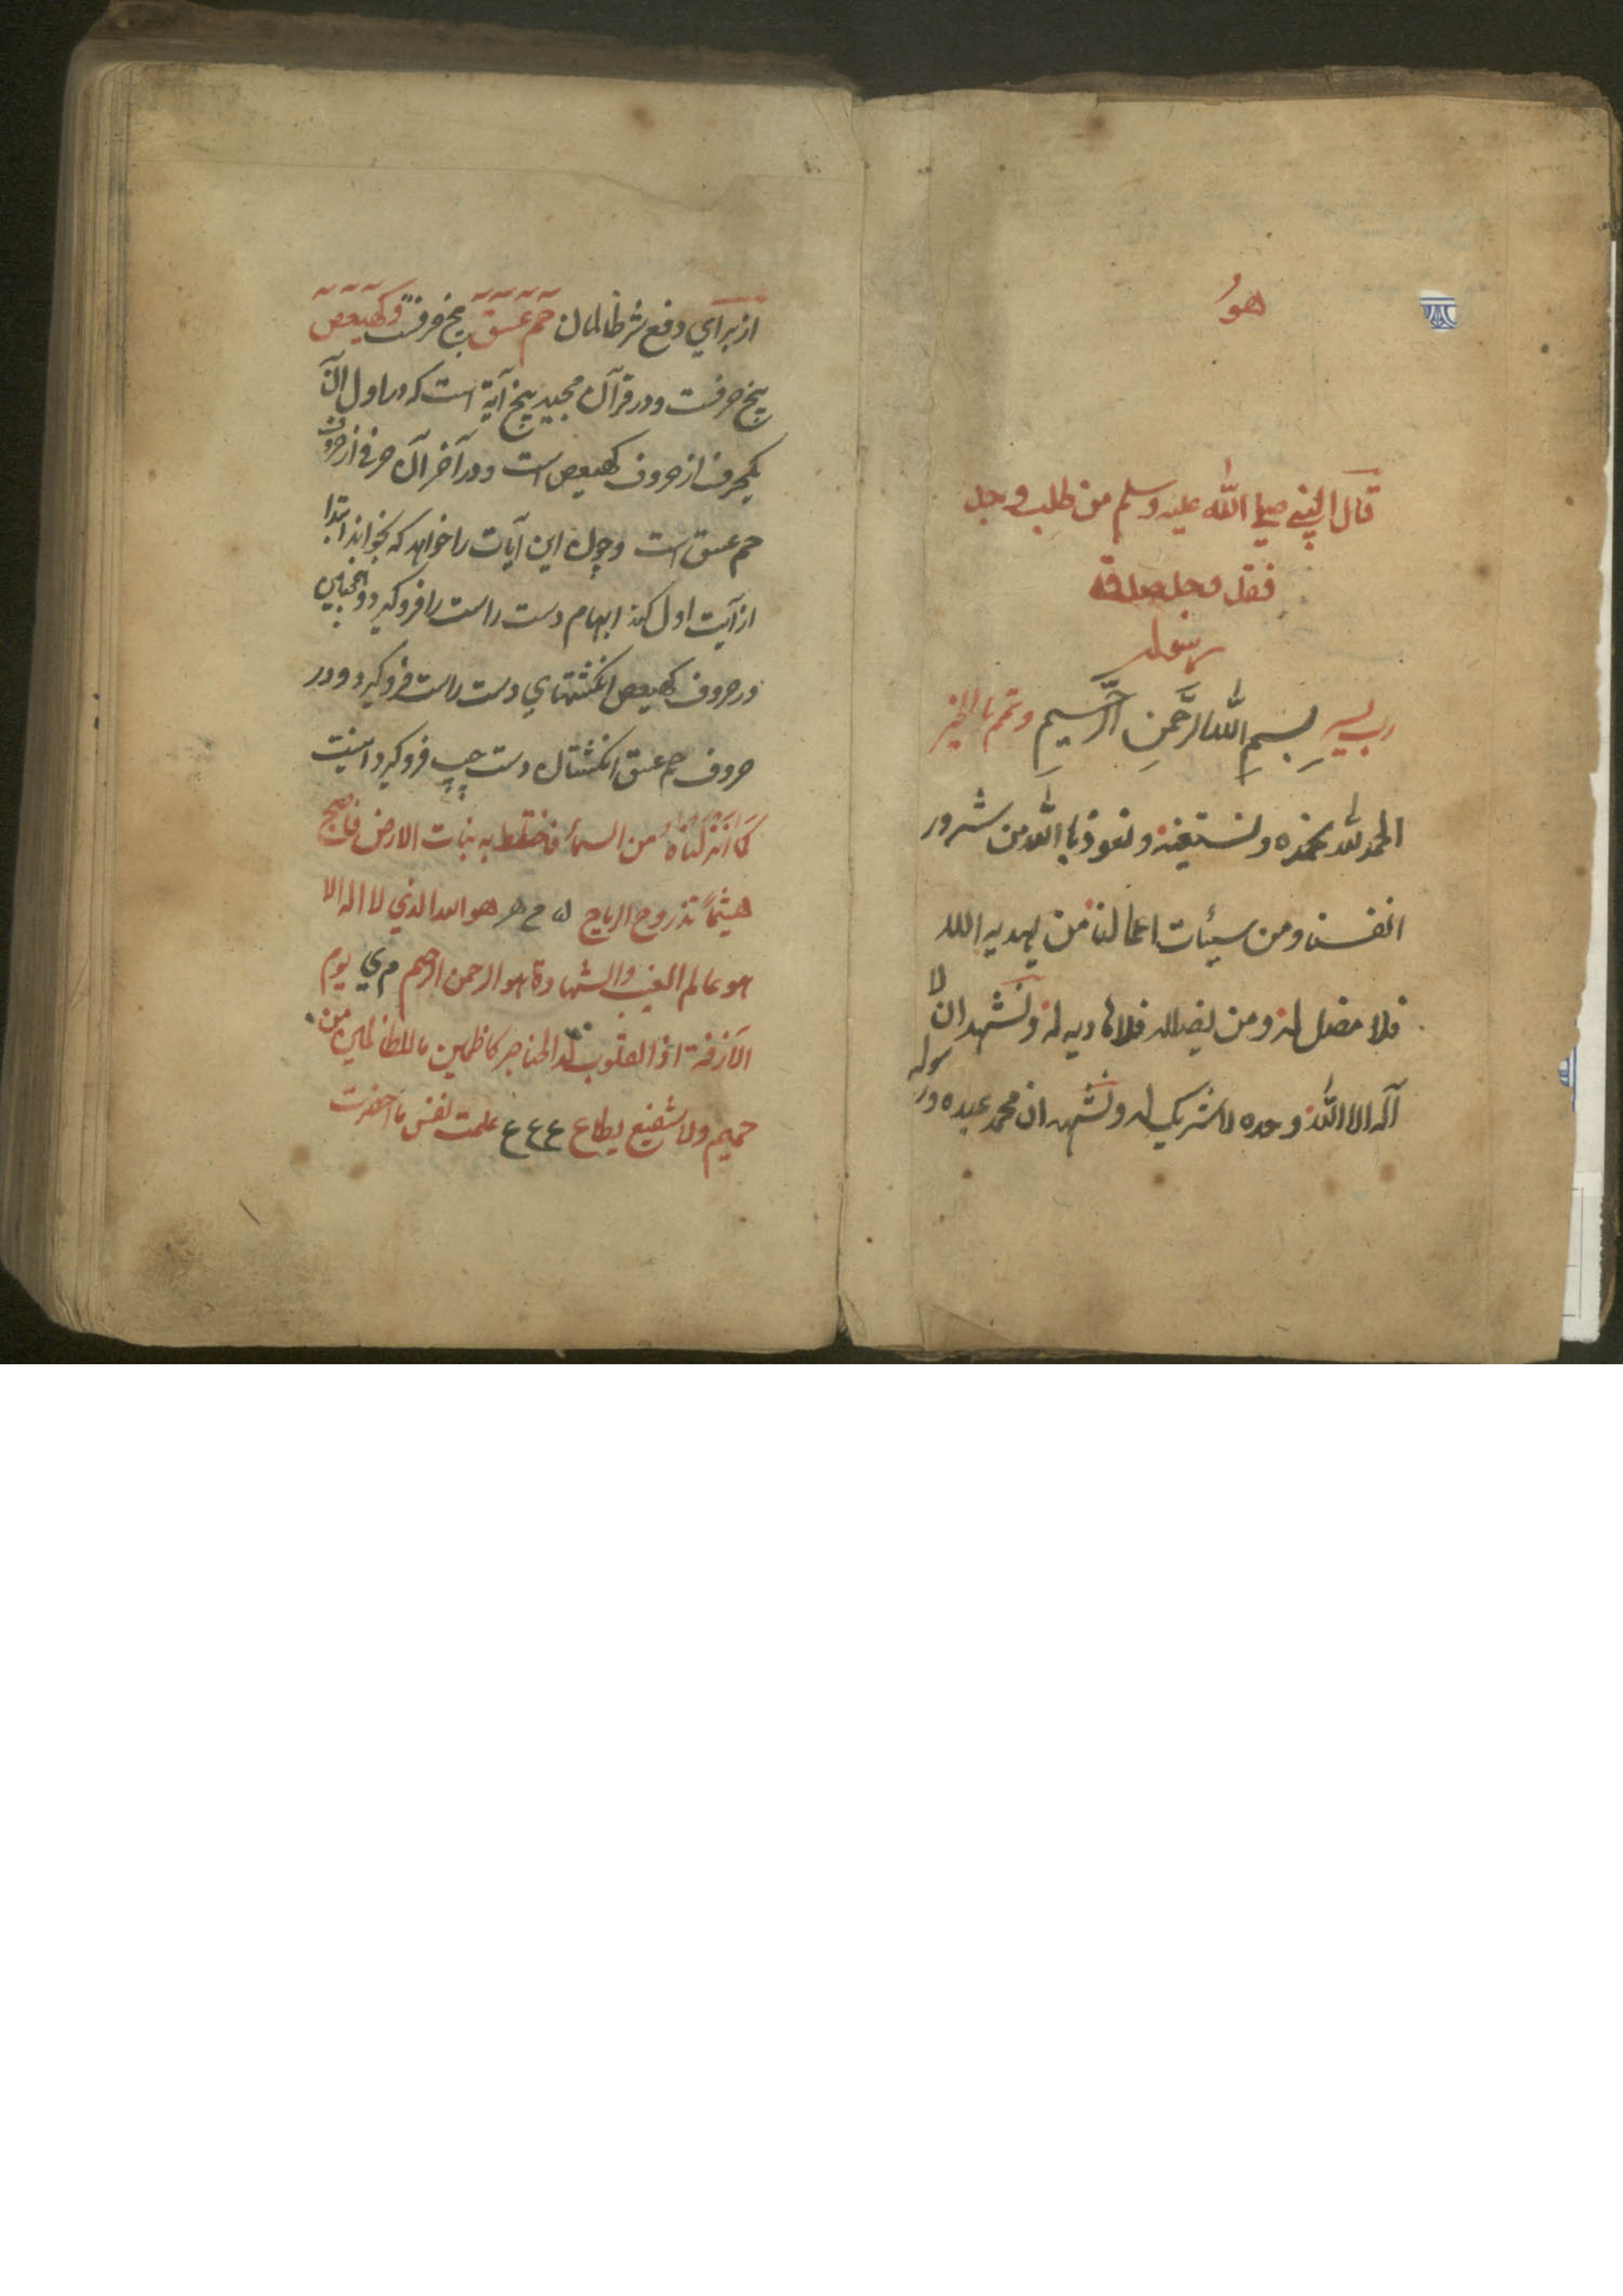 هو
قال النبي صلي الله عليه وسلم من طلب وجل
فقل وجل صدقة
رسوله
رب يسر بسم الله الرحمن الرحيم وتمم بالخير
الحمد لله نحمده ونستعينه ونعوذ باالله من شرور
انفسنا ومن سيئات اعمالنا من يهديه الله
فلا مضل له ومن يضلله فلا هاديه له ونشهد ان لا
آله الا الله وحده لا شريك له ونشهد ان محمد عبده ورسوله
از براي دفع شر ظالمان حم عسق پنج حرفست و كهيعص
پنج حرفست ودر قرآن مجيد پنج آية است كه در اول آن
يكحرف از حروف كهيعص است ودر آخر آن حرفي از حروف
حم عسق است وچون اين آيات را خواهد كه بخواند ابتدا
از آيت اول كند ابهام دست راست را فرو گيرد وهمچنين
در حروف كهيعص انگشتهاي دست راست فرو گيرد ودر
حروف حم عسق انگشتان دست چپ فرو گيرد اينست
كما انزلناه من السماء فاختلط به نبات الارض فاصبح
هشيماً تذروح الرياح ه ح هر هو الله الذي لا اله الا
هو عالم الغيب والشهادة هو الرحمن الرحيم م ي يوم
الآزفة اذ القلوب لدا الحناجر كاظمين ما للظالمين من
حميم ولا شفيع يطاع ع ع ع علمت نفس ما احضرت